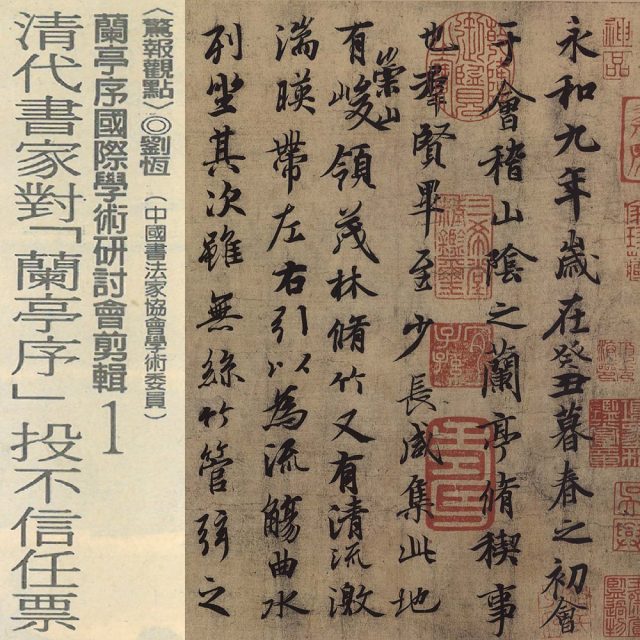 神品
永和九年歲在癸丑暮春之初會
于會稽山陰之蘭亭脩稧事
也羣賢畢至少長咸集此地
有崇山峻領茂林脩竹又有清流激
湍暎帶左右引以為流觴曲水
列坐其次雖無絲竹管弦之
〈驚報觀點〉◎劉恆（中國書法家協會學術委員）
蘭亭序國際學術研討會剪輯1
清代書家對「蘭亭序」投不信任票